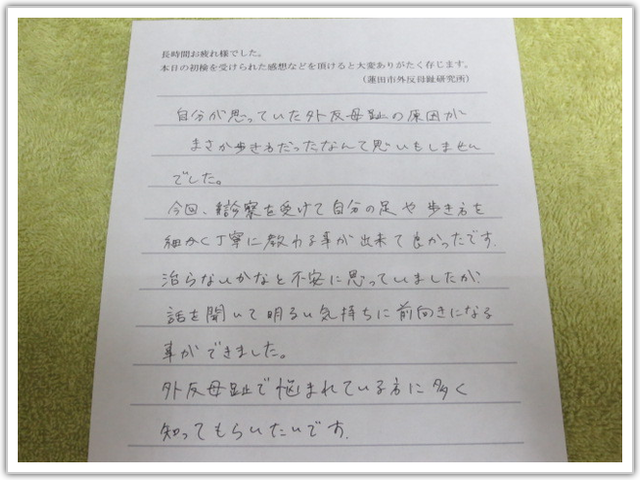 長時間お疲れ様でした。
本日の初検を受けられた感想などを頂けると大変ありがたく存じます。
（蓮田市外反母趾研究所）
自分が思っていた外反母趾の原因が
まさか歩き方だったなんて思いもしません
でした。
今回、診察を受けて自分の足や歩き方を
細かく丁寧に教わる事が出来て良かったです.
治らないかなと不安に思っていましたが
話を聞いて明るい気持ちに前向きになる
事ができました。
外反母趾で悩まれている方に多く
知ってもらいたいです.